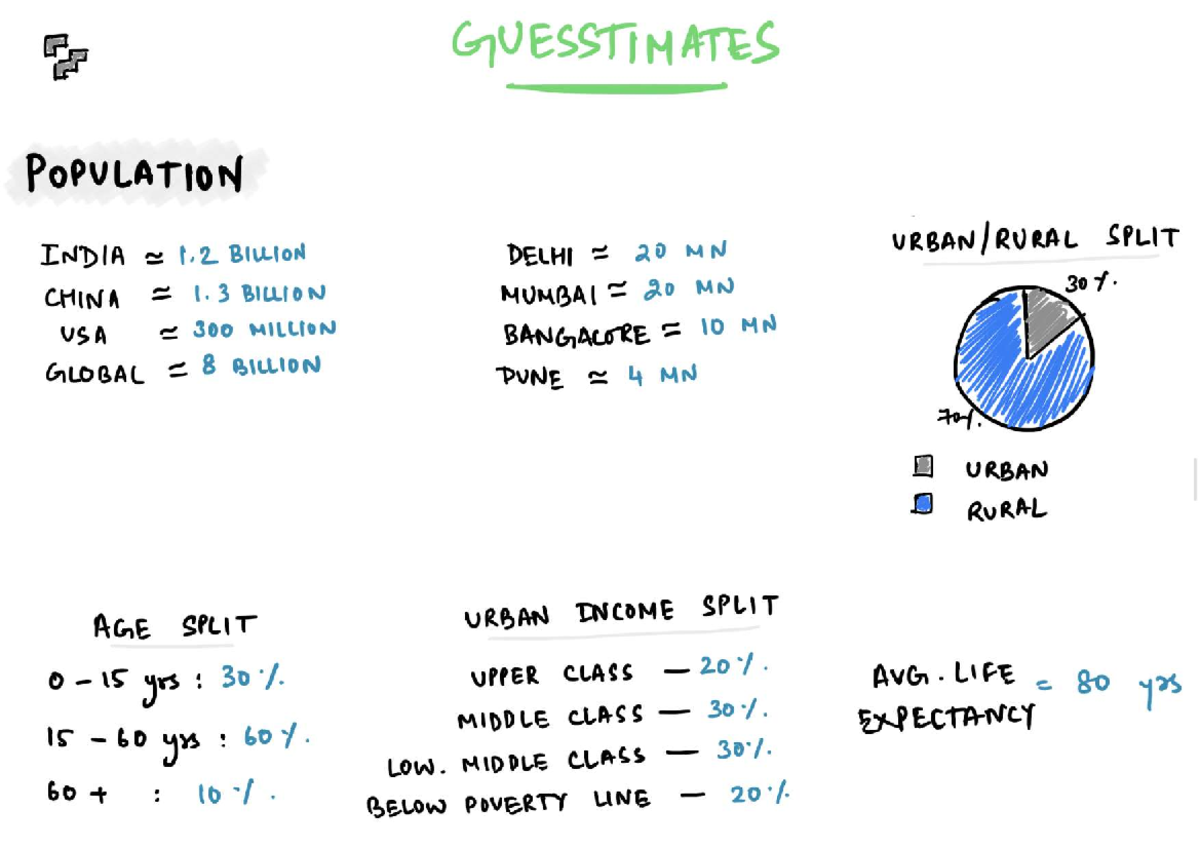 GUESSTIMATES
POPULATION
INDIA ≃ 1.2 BILLION
CHINA ≃ 1.3 BILLION
USA ≃ 300 MILLION
GLOBAL ≃ 8 BILLION
DELHI ≃ 20 MN
MUMBAI ≃ 20 MN
BANGALORE ≃ 10 MN
PUNE ≃ 4 MN
URBAN/RURAL SPLIT
30%.
70%.
URBAN
RURAL
AGE SPLIT
0-15 yrs : 30%.
15-60 yrs : 60%.
60+ : 10%.
URBAN INCOME SPLIT
UPPER CLASS - 20%.
MIDDLE CLASS - 30%.
LOW. MIDDLE CLASS - 30%.
BELOW POVERTY LINE - 20%.
AVG. LIFE
EXPECTANCY = 80 yrs